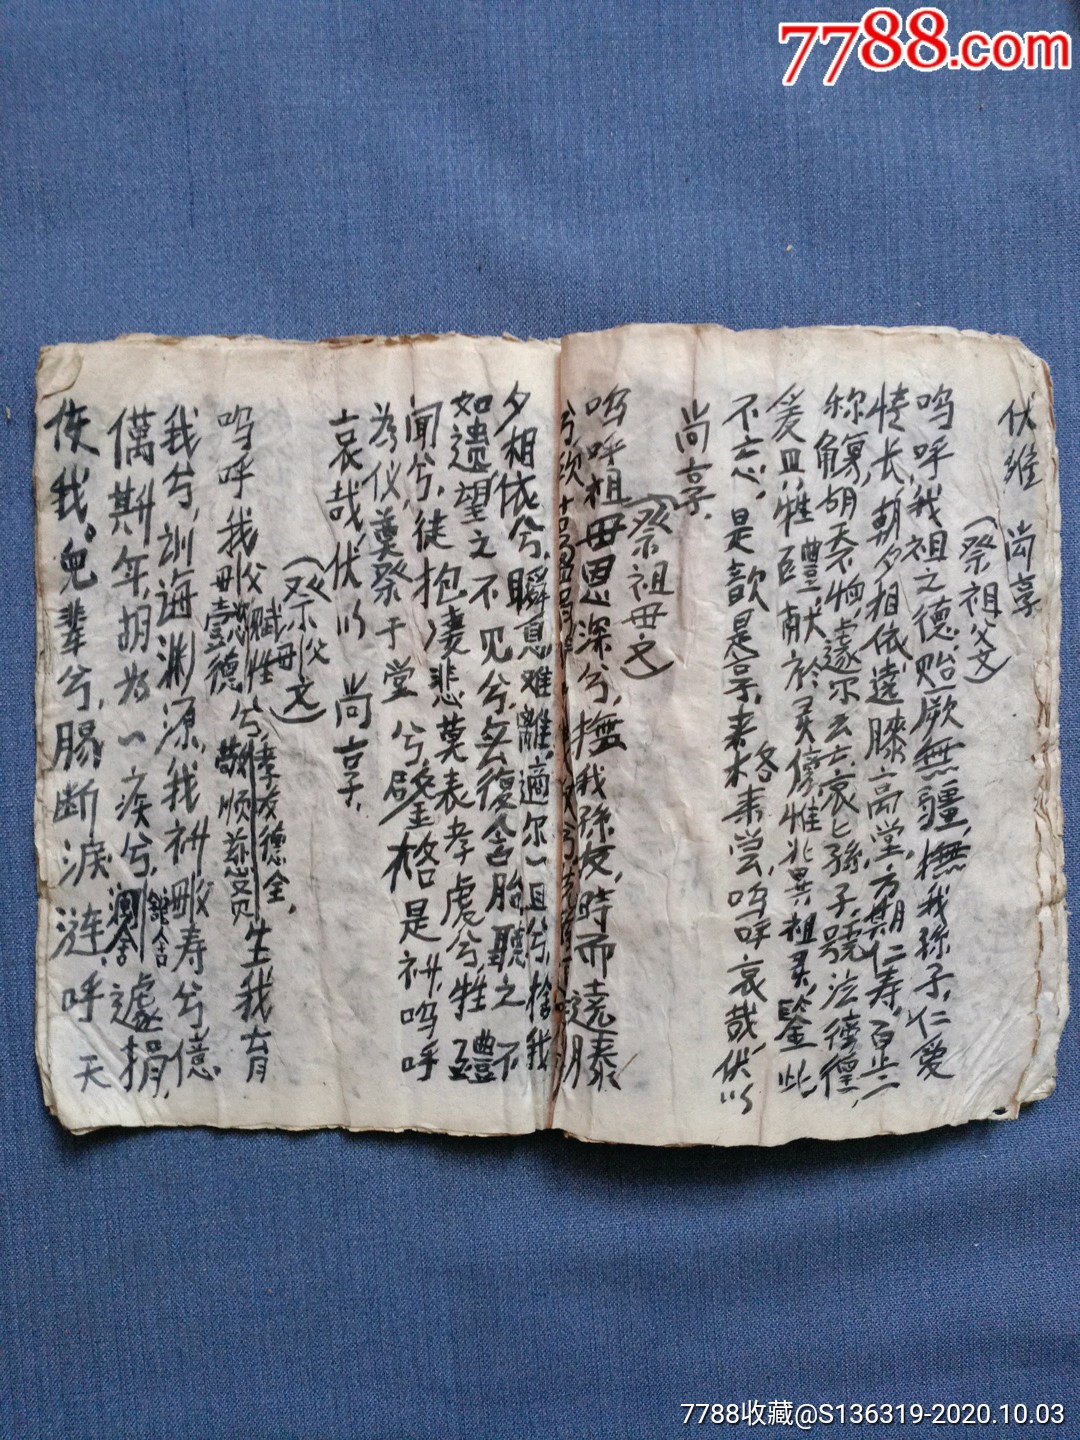 7788.com
伏維 尚享
(祭祖父文)
嗚呼,我祖之德,貽厥無疆,撫我孫子,仁愛
情长,朝夕相依,遶膝高堂,方期仁寿,百止二
称觴,胡天不恤,遽尔云亡,哀匕孫子,號泣徬徨,
爰具牲醴,献於灵傍,惟兆異祖灵,鑒此
不忘,是歆是享,来格来尝,呜呼哀哉,伏以
尚享,
(祭祖母文)
呜呼祖母恩深兮,撫我孫友,時而遶膝
兮
夕相依兮,瞬息难離,適尔一旦兮,捨我
如遗望之不见兮,無復含飴聽之不
闻兮,徒抱凄悲莫表孝虔兮,牲醴
為仪奠祭于堂兮,鑒格是祈,呜呼
哀哉,伏以 尚享,
(祭父母文)
呜呼我父母赋性兮,孝友德全,生我育
懿壹德 敬顺慈贤
我兮,訓海渊源,我祈嚴寿兮億
萬斯年,胡為一疾兮,館舍 遽捐,
使我。兒輩兮,腸断淚涟,呼天
7788收藏@S136319-2020.10.03